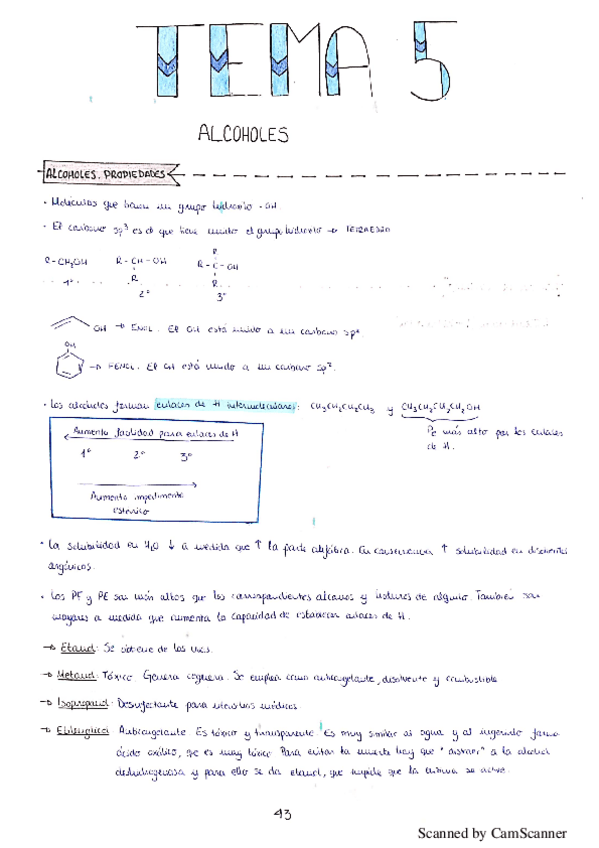 TEMA 5
ALCOHOLES
ALCOHOLES. PROPIEDADES
· Moléculas que tienen un grupo hidroxilo -OH.
· El carbono sp³ es el que tiene unido el grupo hidroxilo → TETRAEDRO
R-CH₂OH R-CH-OH R-C-OH
R
R R
1º 2º 3º
OH → ENOL. El OH está unido a un carbono sp².
OH
→ FENOL. El OH está unido a un carbono sp².
· Los alcoholes forman enlaces de H intermoleculares: CH₃CH₂CH₂CH₃ y CH₃CH₂CH₂CH₂OH
Pe más alto por los enlaces
de H.
Aumenta facilidad para enlaces de H
1º 2º 3º
Aumenta impedimento
estérico
· La solubilidad en H₂O ↓ a medida que ↑ la parte alifática. En consecuencia ↑ solubilidad en disolventes
orgánicos.
· Los PF y PE son más altos que los correspondientes alcanos y haluros de alquilo. También son
mayores a medida que aumenta la capacidad de establecer enlaces de H.
→ Etanol: Se obtiene de las uvas.
→ Metanol: Tóxico. Genera ceguera. Se emplea como anticongelante, disolvente y combustible
→ Isopropanol: Desinfectante para utensilios médicos
→ Etilenglicol: Anticongelante. Es tóxico y transparente. Es muy similar al agua y al ingerirlo forma
ácido oxálico, que es muy tóxico. Para evitar la muerte hay que "distraer" a la alcohol
deshidrogenasa y para ello se da etanol, que impide que la enzima se active.
43
Scanned by CamScanner